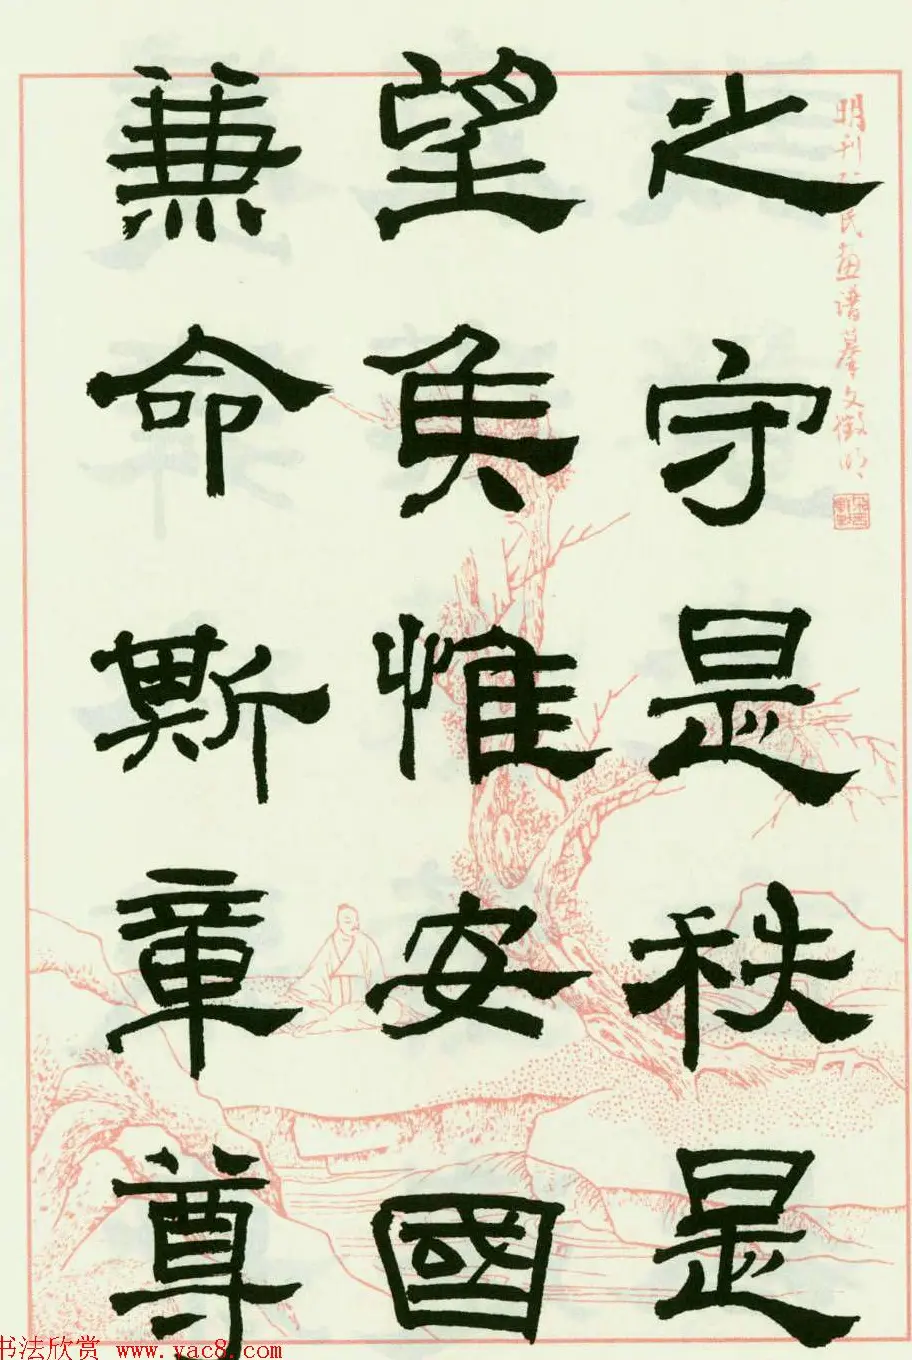 之守是秩是
望矦惟安國
蒹命斯章尊
明刊
民畫譜摹文徵明
书法欣赏 www.yac8.com